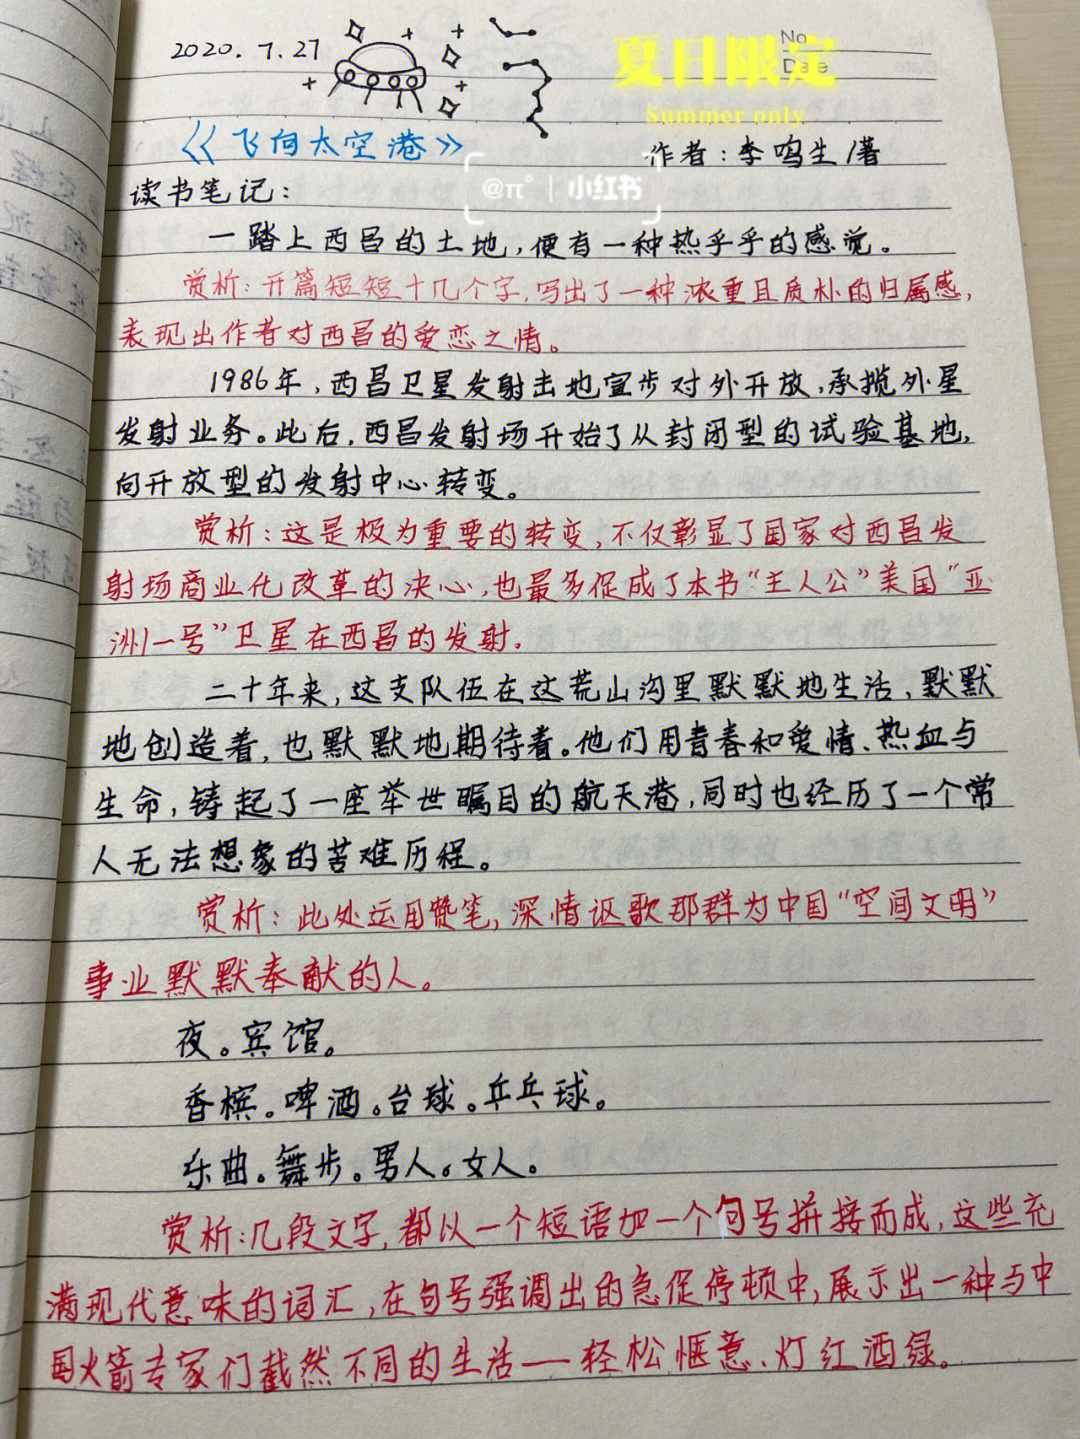 2020.7.27
No
Date
夏日限定
Summer only
《飞向太空港》
作者:李鸣生/著
@π° | 小红书
读书笔记:
一踏上西昌的土地,便有一种热乎乎的感觉。
赏析:开篇短短十几个字,写出了一种浓重且质朴的归属感,
表现出作者对西昌的爱恋之情。
1986年,西昌卫星发射基地宣步对外开放,承揽外星
发射业务。此后,西昌发射场开始了从封闭型的试验基地,
向开放型的发射中心转变。
赏析:这是极为重要的转变,不仅彰显了国家对西昌发
射场商业化改革的决心,也最多促成了本书“主人公”美国“亚
洲一号”卫星在西昌的发射.
二十年来,这支队伍在这荒山沟里默默地生活,默默
地创造着,也默默地期待着。他们用青春和爱情、热血与
生命,铸起了一座举世瞩目的航天港,同时也经历了一个常
人无法想象的苦难历程。
赏析:此处运用赞笔,深情讴歌那群为中国“空间文明”
事业默默奉献的人。
夜。宾馆。
香槟。啤酒。台球。乒乓球。
乐曲。舞步。男人。女人。
赏析:几段文字,都以一个短语加一个句号拼接而成,这些充
满现代意味的词汇,在句号强调出的急促停顿中,展示出一种与中
国火箭专家们截然不同的生活——轻松惬意、灯红酒绿。